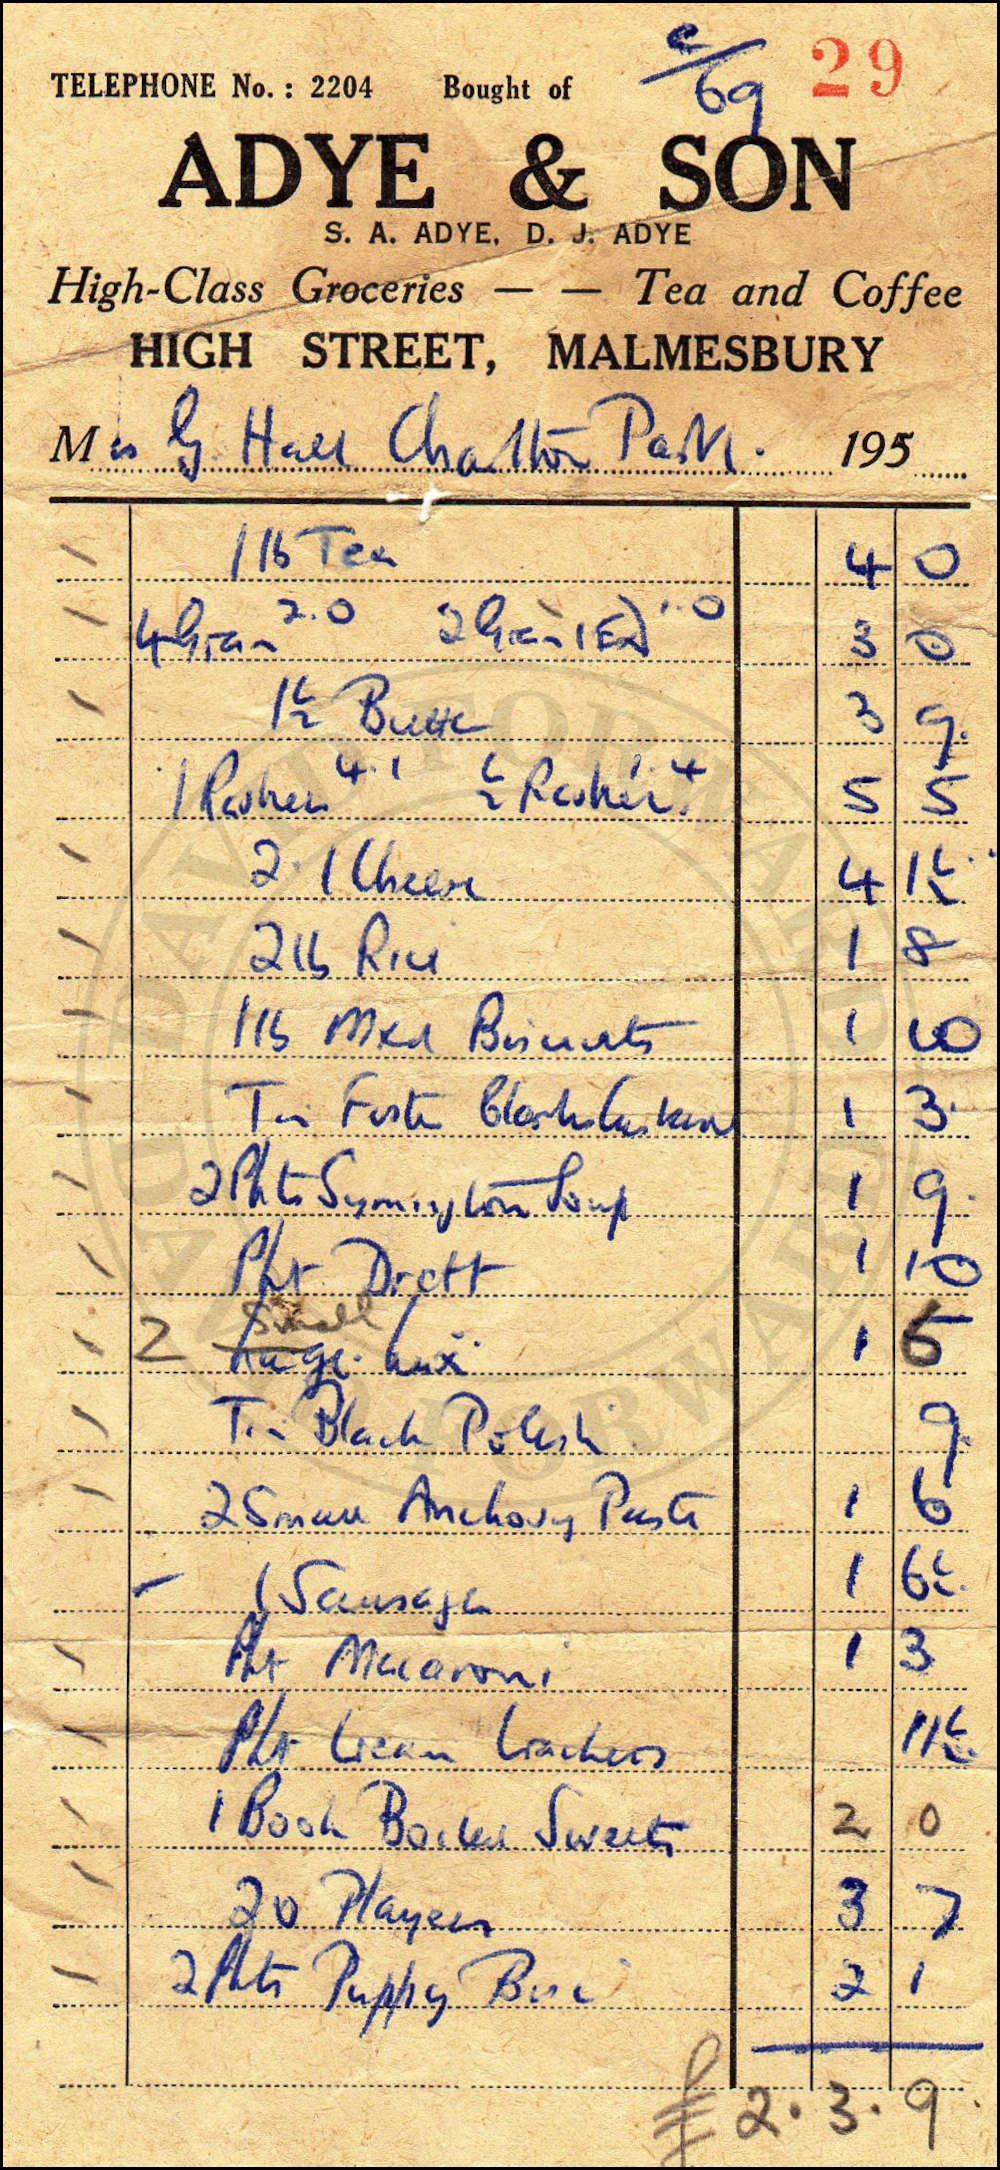 e/69 29
TELEPHONE No. : 2204 Bought of
ADYE & SON
S. A. ADYE, D. J. ADYE
High-Class Groceries — — Tea and Coffee
HIGH STREET, MALMESBURY
Mrs G. Hall Charlton Park. 195
1 lb Tea 4 0
4 Gran 2.0 2 Gran 1.0 3 0
1½ Butter 3 9
1 Rasher 4.1 ½ Rasher 1.4 5 5
2.1 Cheese 4 1½
2 lb Rice 1 8
1 lb Mxd Biscuits 1 10
Tin Foster Clark 1 3
2 Pkts Symington Soup 1 9
Pkt Dreft 1 10
2 Small
Large Lux 1 5
Tin Black Polish 9
2 Small Anchovy Paste 1 6
1 Sausages 1 6½
Pkt Macaroni 1 3
Pkt Cream Crackers 11½
1 Book Boiled Sweets 2 0
20 Players 3 7
2 Pkts Puppy Bisc 2 1
£ 2.3.9